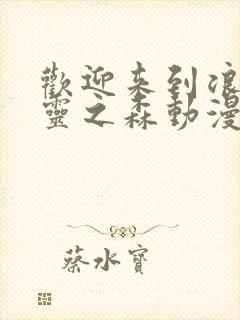 歡迎来到浪
靈之森動漫
蔡水寶